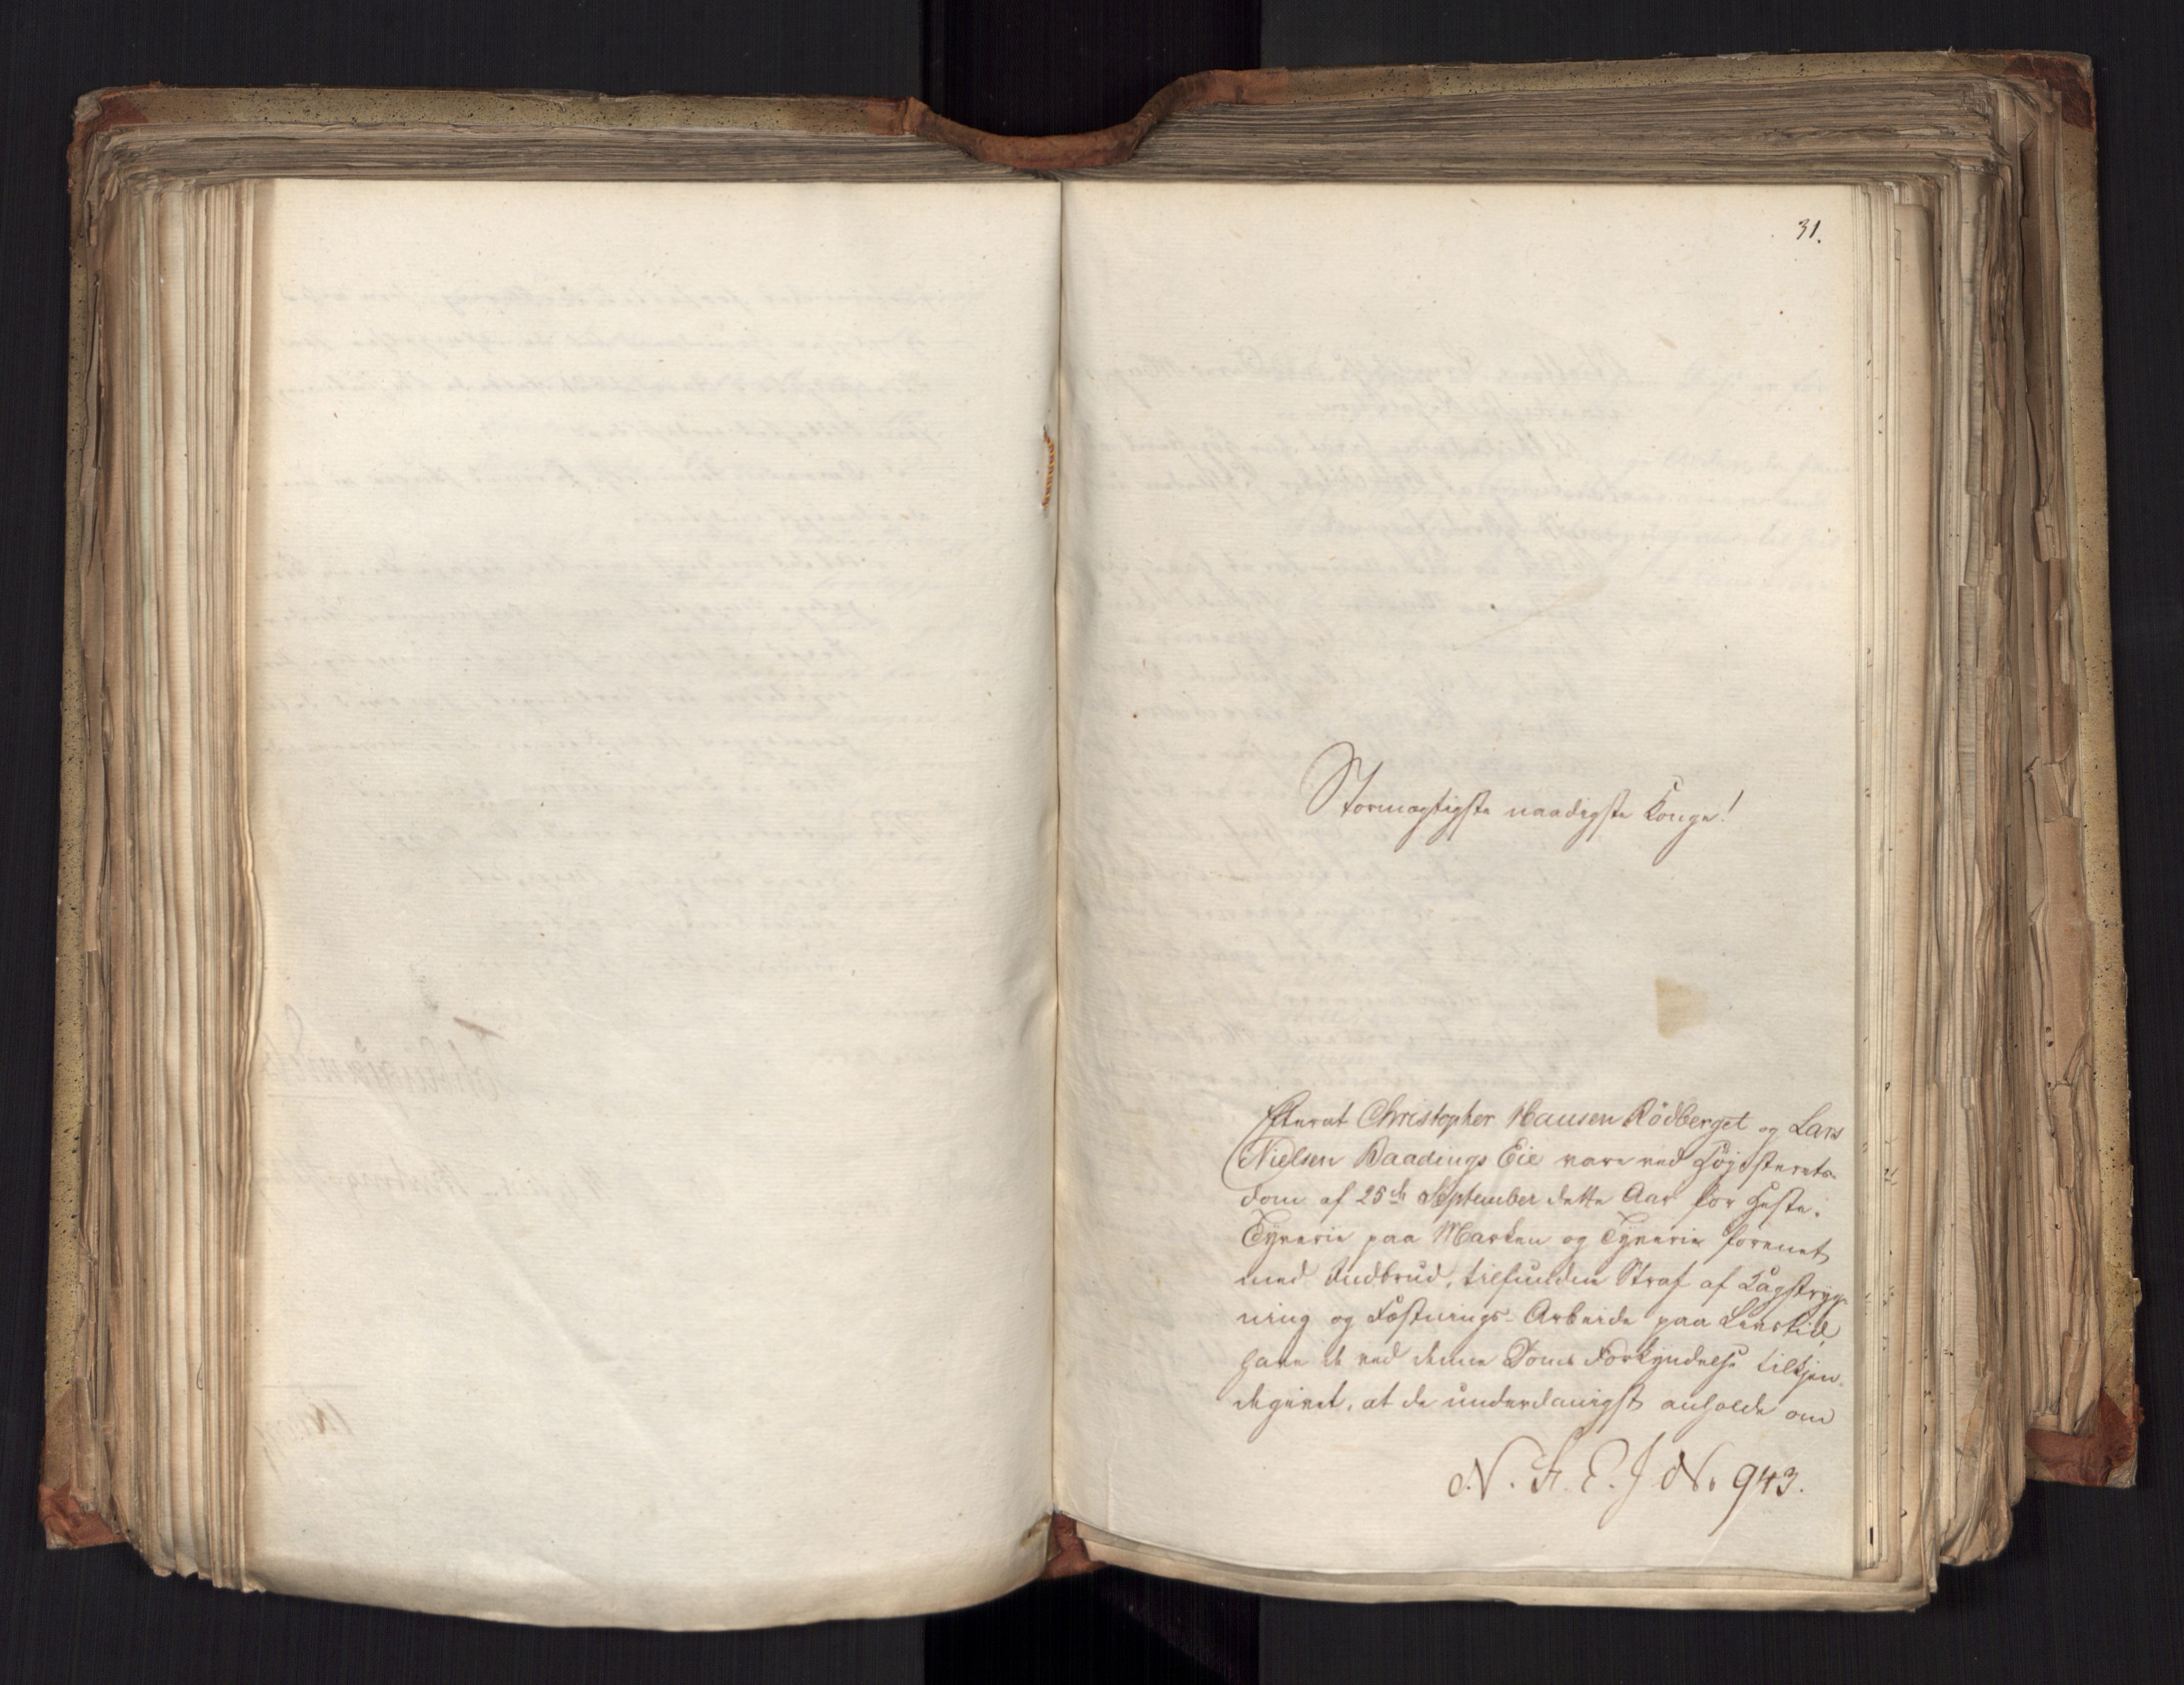 31.
Stormægtigste naadigste Konge!
Efterat Christopher Hansen Rödberget og Lars
Nielsen Baadings Eie vare ved Høiesterets-
dom af 25de September dette Aar for Heste-
Tyverie paa Marken og Tyverie forenet
med Indbrud, tilfunden Straf af Kagstryg-
ning og Fæstnings-Arbeide paa Livstid
have de ved denne Doms Forkyndelse tilkjen-
degivet, at de underdanigst anholde om
N. St. E. J No 943.